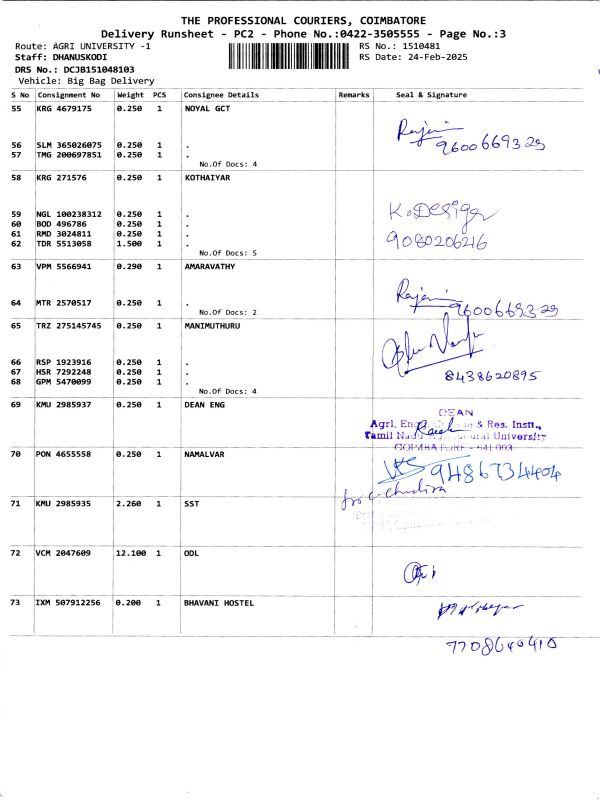 THE PROFESSIONAL COURIERS, COIMBATORE
Delivery Runsheet - PC2 - Phone No.:0422-3505555 - Page No.:3
Route: AGRI UNIVERSITY -1 RS No.: 1510481
Staff: DHANUSKODI RS Date: 24-Feb-2025
DRS No.: DCJB151048103
Vehicle: Big Bag Delivery
S No Consignment No Weight PCS Consignee Details Remarks Seal & Signature
55 KRG 4679175 0.250 1 NOYAL GCT
Rajeni
9600669329
56 SLM 365026075 0.250 1 .
57 TMG 200697851 0.250 1 .
No.Of Docs: 4
58 KRG 271576 0.250 1 KOTHAIYAR
59 NGL 100238312 0.250 1 .
60 BOD 496786 0.250 1 .
61 RMD 3024811 0.250 1 .
62 TDR 5513058 1.500 1 .
9080206216
No.Of Docs: 5
63 VPM 5566941 0.290 1 AMARAVATHY
Rajeni
64 MTR 2570517 0.250 1 .
9600669329
No.Of Docs: 2
65 TRZ 275145745 0.250 1 MANIMUTHURU
66 RSP 1923916 0.250 1 .
67 HSR 7292248 0.250 1 .
8438620895
68 GPM 5470099 0.250 1 .
No.Of Docs: 4
69 KMU 2985937 0.250 1 DEAN ENG
DEAN
Agri. Eng. & Res. Instt.,
Tamil Nadu University
COIMBATORE - 641 003
70 PON 4655558 0.250 1 NAMALVAR
9486734404
71 KMU 2985935 2.260 1 SST
72 VCM 2047609 12.100 1 ODL
73 IXM 507912256 0.200 1 BHAVANI HOSTEL
7708640410